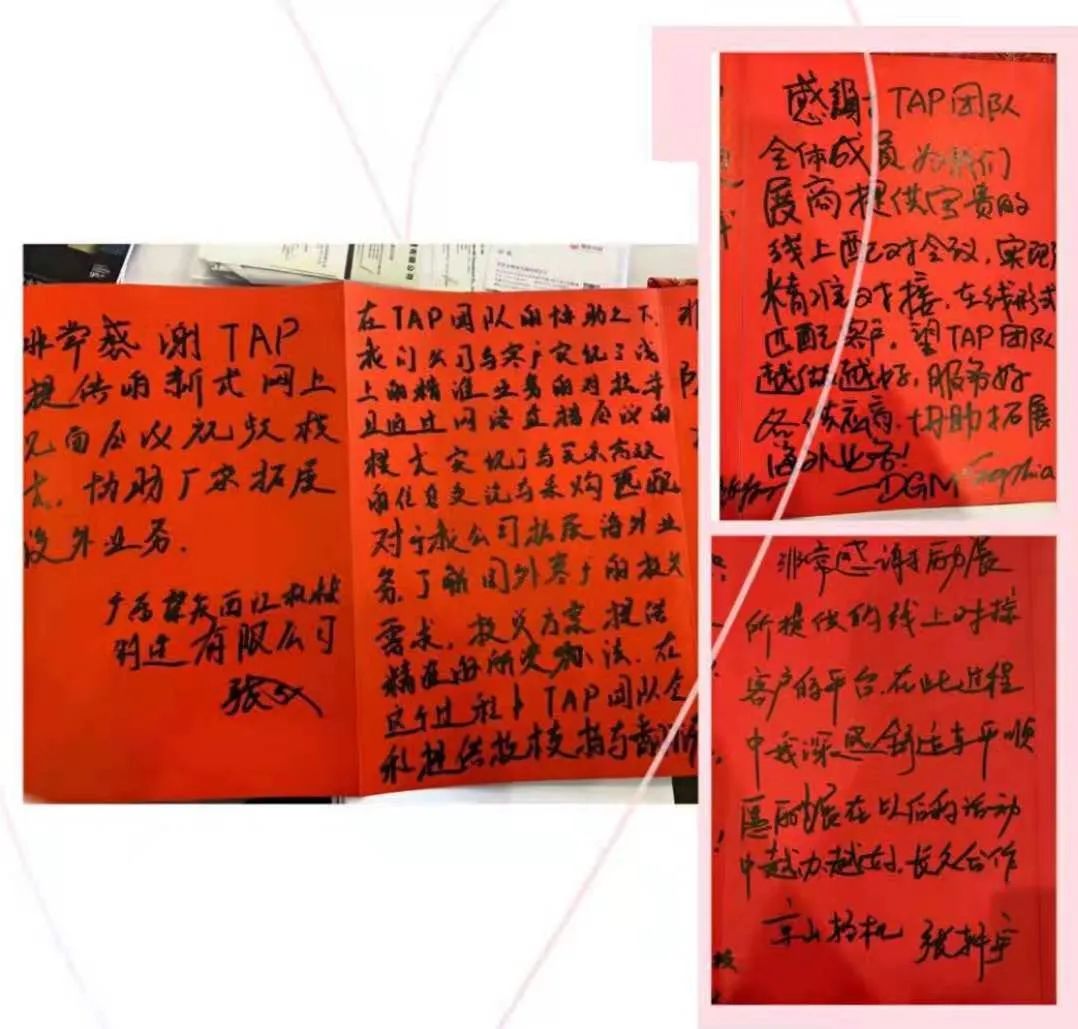 非常感谢TAP
提供的新式网上
见面会议视频模
式,协助厂家拓展
海外业务.
西江机械
制造有限公司
在TAP团队的协助之下,
我们公司与客户实现了线
上的精准业务的对接并
且通过网络直播会议的
模式实现了与买家高效
的信息交流与采购匹配
对于我公司拓展海外业
务,了解国外客户的技术
需求,技术方案提供
精准的解决办法,在
这个过程中TAP团队全
程提供技术指导
感谢TAP团队
全体成员为我们
展商提供宝贵的
线上配对会议,实现
精准对接,在线形式
匹配客户,望TAP团队
越做越好,服务好
各供应商,协助拓展
海外业务!
——DGM Sophia
非常感谢励展
所提供的线上对接
客户的平台,在此过程
中我深感舒适与平顺
愿励展在以后的活动
中越办越好,长久合作
京山轻机